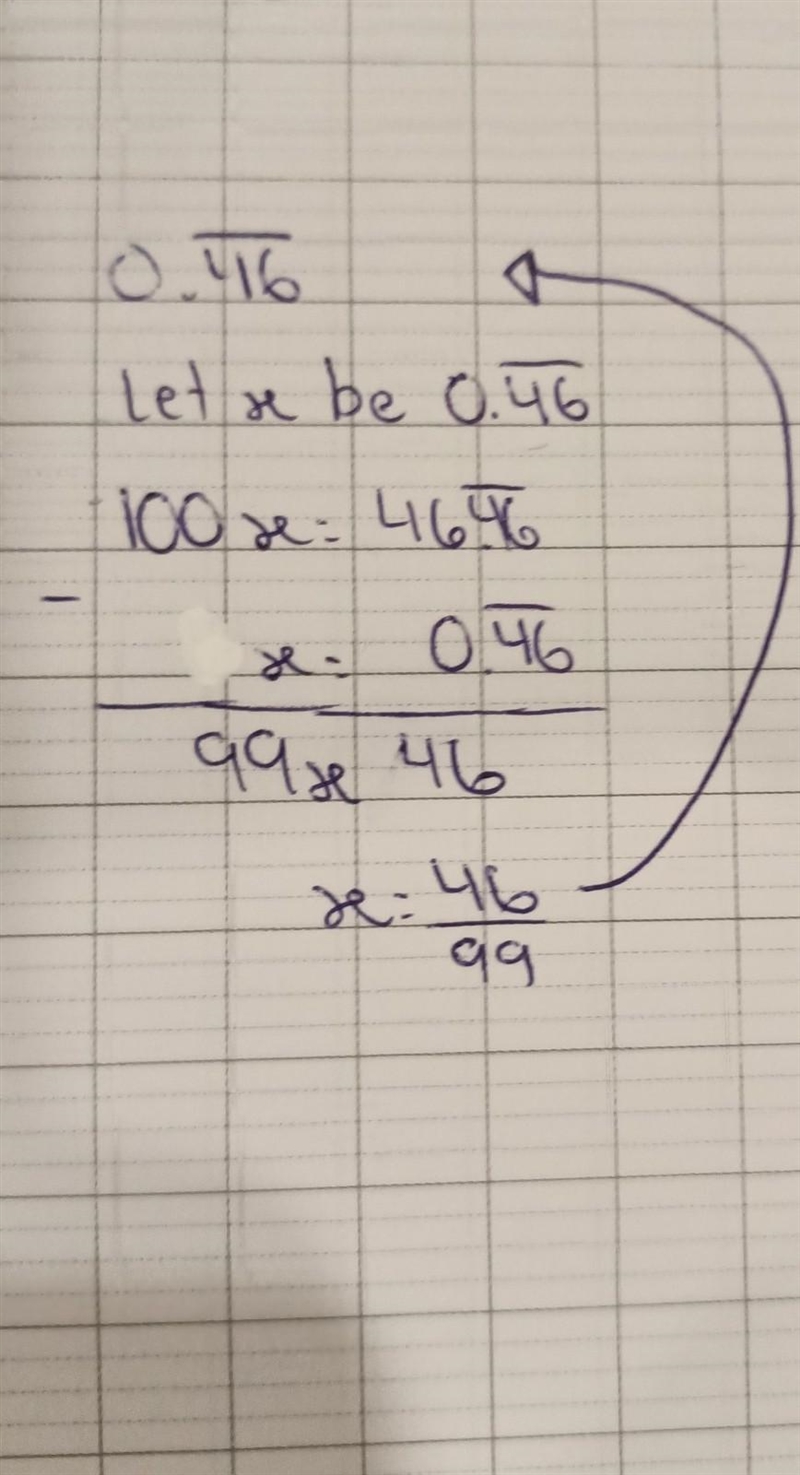 0.4̅6̅
Let x be 0.4̅6̅
100x = 46.4̅6̅
-
x = 0.4̅6̅
99x 46
x = 46
99